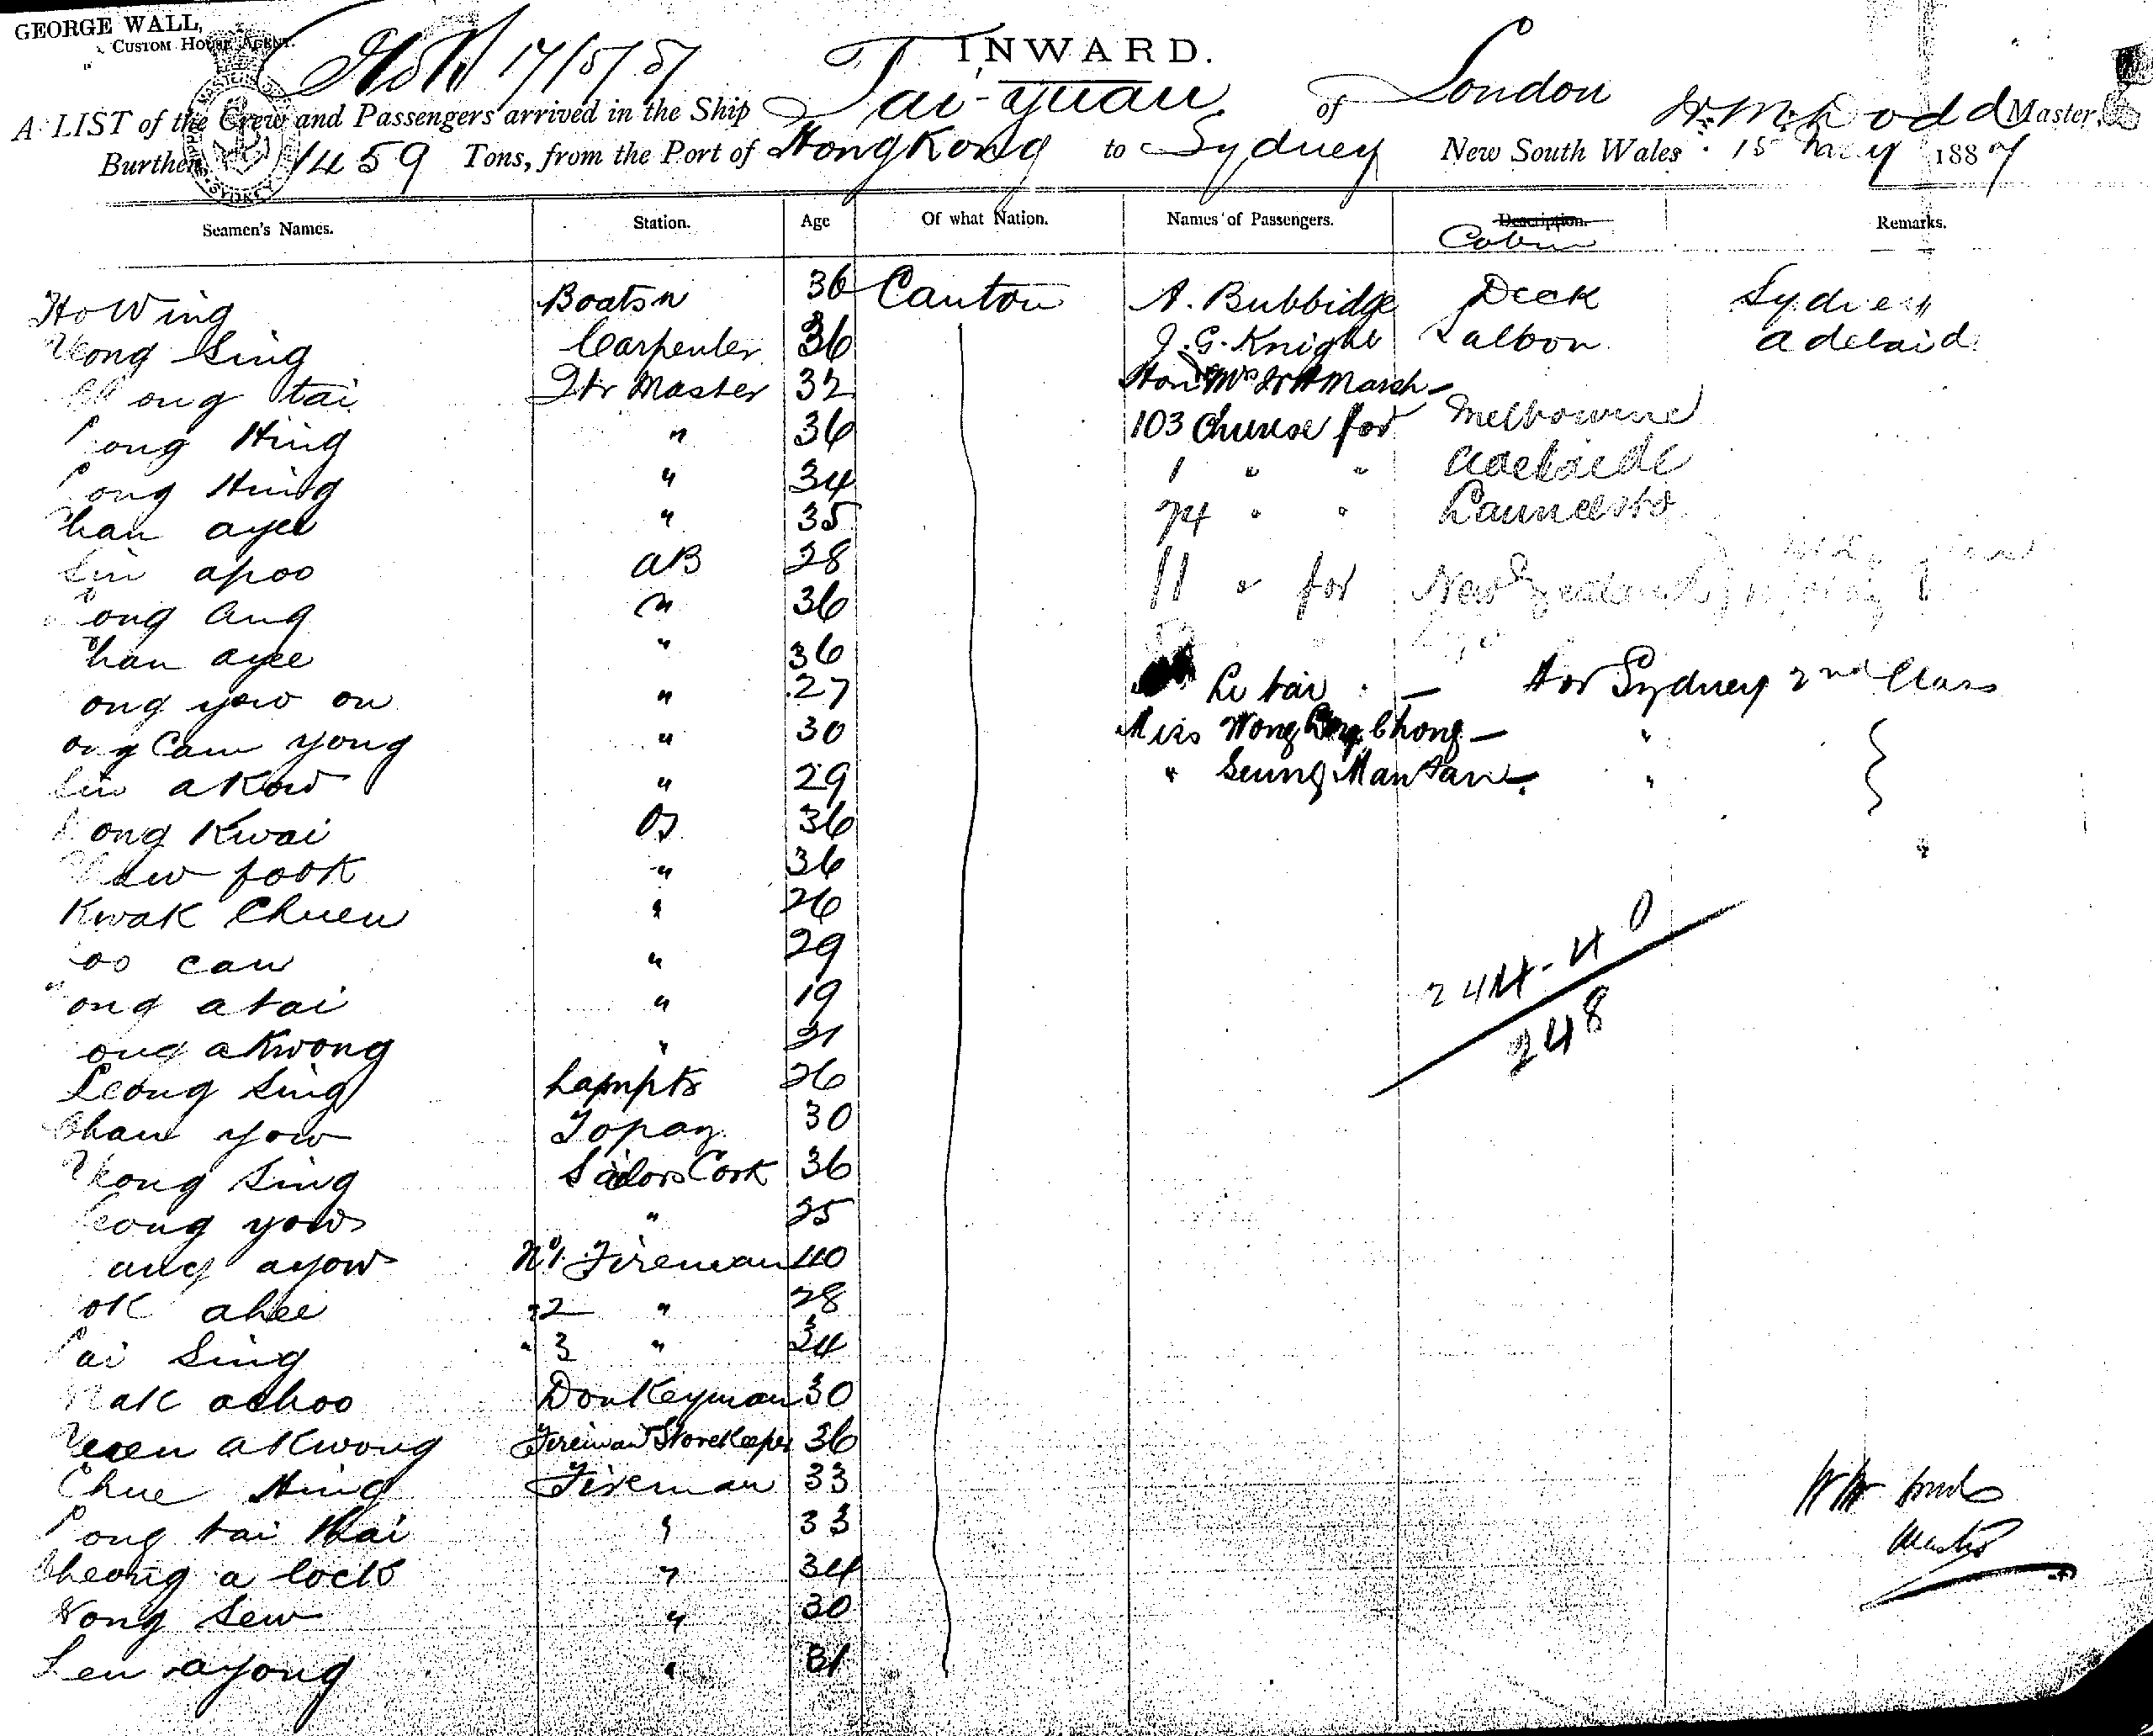 GEORGE WALL,
CUSTOM HOUSE AGENT.
17/5/87
INWARD.
A LIST of the Crew and Passengers arrived in the Ship Tai-yuan of London W. M. Dodd Master,
Burthen 1459 Tons, from the Port of Hong Kong to Sydney New South Wales 15 May 1887
Seamen's Names. Station. Age Of what Nation. Names of Passengers. Description. Remarks.
Cabin
Ho Wing Boatsn 36 Canton A. Bubbidge Deck Sydney
Yeong Sing Carpenter 36 J. G. Knight Saloon Adelaid
ong tai Qtr Master 32 Marsh
ong Hing " 36 103 Chinese for Melbourne
ong Hing " 34 1 " " Adelaide
han ayee " 35 74 " " Launcesto
Sin apoo AB 28 11 " for New Zealand
ong ang " 36
han ayee " 36
ong yow on " 27 Li tai - for Sydney 2nd Class
ong Cam yong " 30 Miss Wong Chong - "
Sin akow " 29 " Seung Man tan - "
ong Kwai OS 36
fook " 36
Kwak Chuen " 26
oo can " 29
ong atai " 19
ong akwong " 21
Leong Sing Lamptr 26
Chan yow Topaz 30
Yeong Sing Sailors Cook 36
eong yow " 25
ung ayow No 1 Fireman 40
ok ahee " 2 " 28
ai Sing " 3 " 34
Mak achoo Donkeyman 30
Yuen akwong Fireman Storekeeper 36
Chue Hing Fireman 33
ong tai Kai " 33
Cheong a lock " 34
Wong Sew " 30
Len ayong " 31
244-40
248
Master